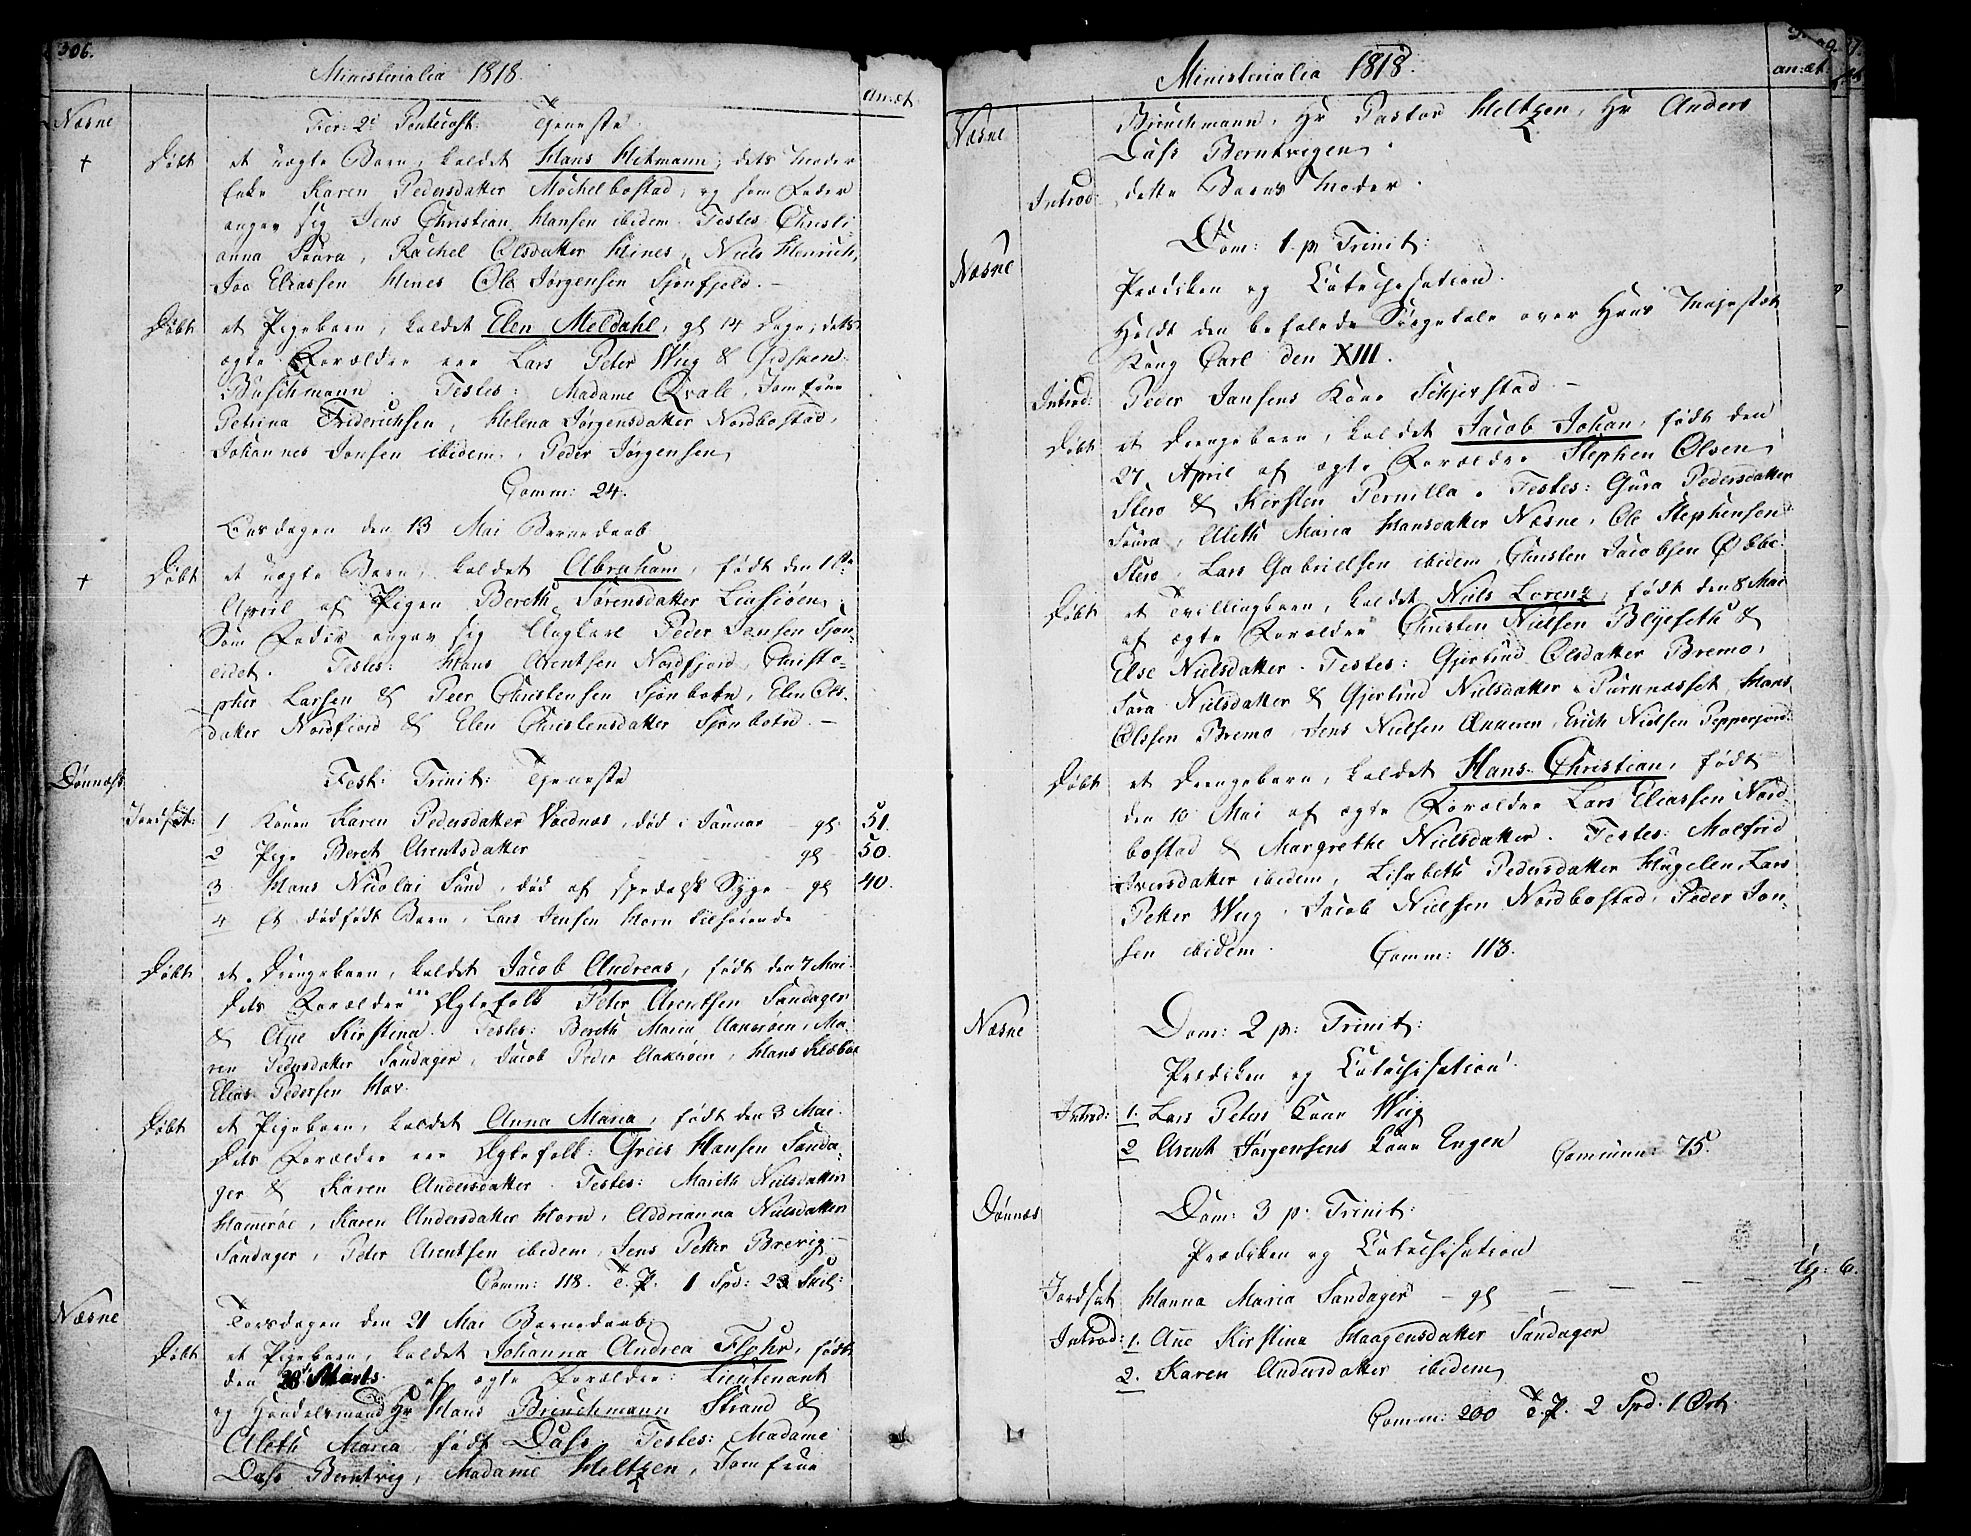 306.
Ministerialia 1818.
an: æt
Næsne
Fer: 2d Pentecost: Tjeneste
+ Døbt et uægte Barn, kaldet Hans Hitmann, dets Moder
Enke Karen Pedersdatter Mochelbostad, og som Fader
angav sig Jens Christian Hansen ibidem. Testes Christi-
anna Soura, Rachel Olsdatter Hines, Niels Henrich,
Joa Eliassen Hines Ole Jørgensen Sjonfjeld. –
Døbt et Pigebarn, kaldet Elen Meldahl, gl 14 Dage, dets
ægte Forældre ere Lars Peter Wiig & Gidsken
Buschmann. Testes: Madame Qvale, Jomfrue
Petrina Friderichsen, Helena Jørgensdatter Nordbostad,
Johannes Jonsen ibidem, Peder Jørgensen
Comm: 24.
Onsdagen den 13 Mai Barnedaab
+ Døbt et uægte Barn, kaldet Abraham, født den 18de
April af Pigen Bereth Sørensdatter
Som Fader angav sig Ungkarl Peder Jensen Sjon-
eidet. Testes: Hans Arentsen Nordfjord, Christo-
pher Larsen & Peer Christensen Sjonbotn, Elen Ols-
datter Nordfiord & Elen Christensdatter Sjonbotn. –
Dønnæs
Fest: Trinit: Tjeneste
Jordfæst: 1 Konen Karen Pedersdatter Voldnæs, død i Januar – gl 51.
2 Pige Beret Arentsdatter gl – 50.
3 Hans Nicolai Sund, død af spedalsk Syge – gl 40.
4 Et dødfødt Barn, Lars Jensen Horn tilhørende
Døbt et Drengebarn, kaldet Jacob Andreas, født den 7 Mai.
Dets Forældre ere Ægtefolk Peter Arentsen Sandager
& Ane Kirstina. Testes: Bereth Maria Aakviøen, Ma-
ren Pedersdatter Sandager, Jacob Peder Aakviøen, Hans Klæboe
Elias Pedersen Hov.
Døbt et Pigebarn, kaldet Anna Maria, født den 3 Mai.
Dets Forældre ere Ægtefolk: Greis Hansen Sanda-
ger & Karen Andersdatter. Testes: Mareth Nielsdatter
Hammerøe, Karen Andersdatter Horn, Addrianna Nielsdatter
Sandager, Peter Arentsen ibidem, Jens Petter Brevig
Comm: 118. T. P. 1 Spd: 23 Skil:
Næsne
Torsdagen den 21 Mai Barnedaab
Døbt et Pigebarn, kaldet Johanna Andrea Flohr, født
den 28 Marts af ægte Forældre: Lieutenant
og Handelsmand Hr Hans Brinchmann Strand &
Aleth Maria født Dass. Testes: Madame
Dass Berntvig, Madame Heltzen, Jomfrue
Ministerialia 1818.
an: æt.
Næsne
Brinchmann, Hr Pastor Heltzen, Hr Anders
Dass Berntvigen.
Introd: dette Barns Moder.
Næsne
Dom: 1. p. Trinit:
Prædiken og Catechisation.
Holdt den befalede Sørgetale over Hans Majestæt
Kong Carl den XIII.
Introd: Peder Jansens Kone Schjerstad –
Døbt et Drengebarn, kaldet Jacob Johan, født den
27 April af ægte Forældre Stephen Olsen
Stero & Kirsten Pernilla. Testes: Gura Pedersdatter
Soura, Aleth Maria Hansdatter Næsne, Ole Stephensen
Stero, Lars Gabrielsen ibidem, Christen Jacobsen
Døbt et Tvillingbarn, kaldet Niels Lorenz, født den 8 Mai
af ægte Forældre Christen Nielsen Blyeseth &
Else Nielsdatter. Testes: Gjertrud Olsdatter Bremo,
Sara Nielsdatter & Gjertrud Nielsdatter Furunæsset, Hans
Olssen Bremo, Jens Nielsen Aanneren, Erich Nielsen Pepperjord:
Døbt et Drengebarn, kaldet Hans Christian, født
den 10 Mai af ægte Forældre Lars Eliassen Nord-
bostad & Margrethe Nielsdatter. Testes: Malfrid
Iversdatter ibidem, Lisabeth Pedersdatter Hugelen, Lars
Petter Wiig, Jacob Nielsen Nordbostad, Peder Jon-
sen ibidem. Comm: 113.
Næsne
Dom: 2 p: Trinit:
Prædiken og Catechisation.
Introd: 1. Lars Peters Kone Wiig
2 Arent Jørgensens Kone Engen Commun: 75.
Dønnæs
Dom: 3 p. Trinit:
Prædiken og Catechisation
Jordfæst Hanna Maria Sandager – gl – – – – Ug: 6.
Introd: 1. Ane Kirstina Haagensdatter Sandager
2. Karen Andersdatter ibidem
Comm: 200 T. P. 2 Spd. 1 Ort.